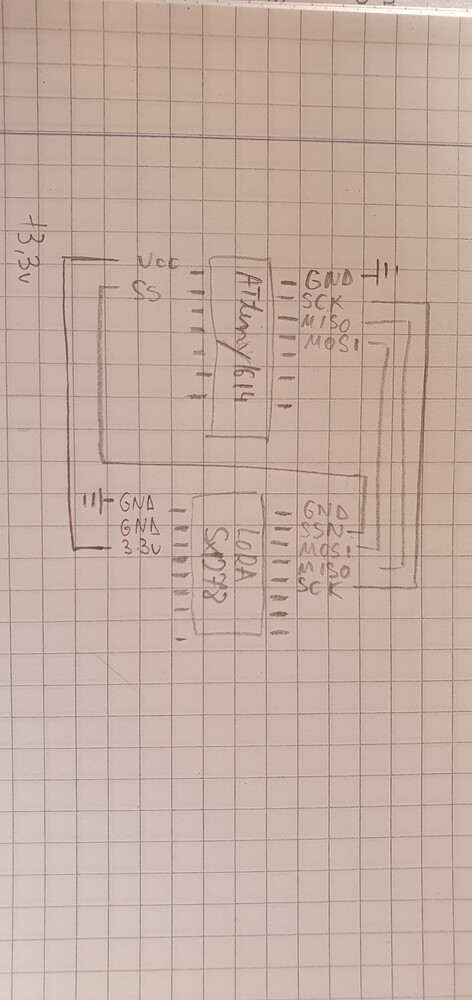 +3,3v
Vcc
SS
ATtiny1614
GND
SCK
MISO
MOSI
GND
GND
3.3v
LORA
SX1278
GND
SSN
MOSI
MISO
SCK